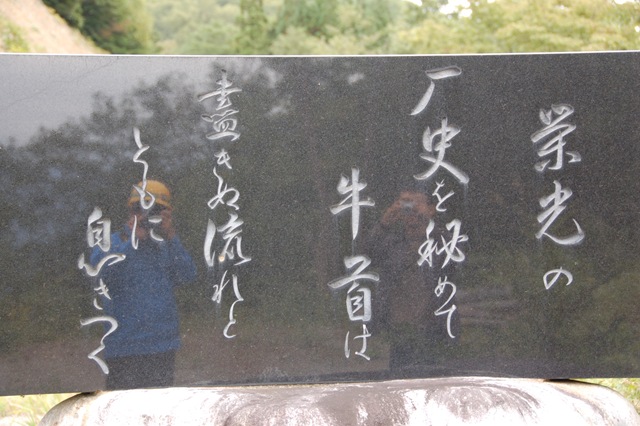 栄光の
厂史を秘めて
牛首は
盡きぬ流れと
ともに
息きつく